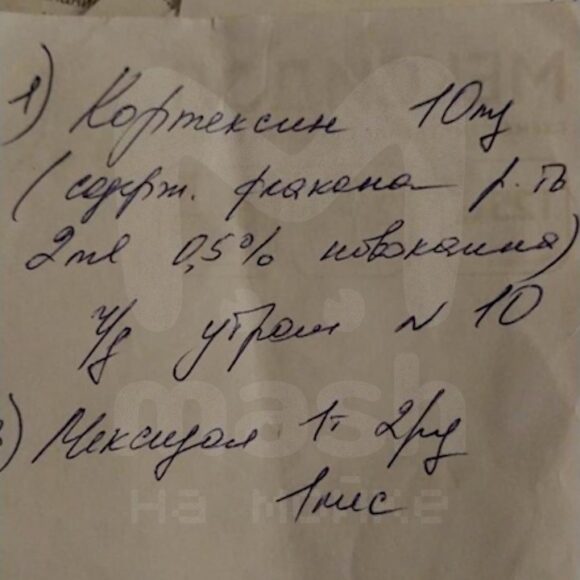 1) Кортексин 10 mg
(содерж. флакона р.-ть
2 мл 0,5% новокаина)
ч/д утром N 10
2) Мексидол 1т 2 р/д
1 мес
mash
на мойке